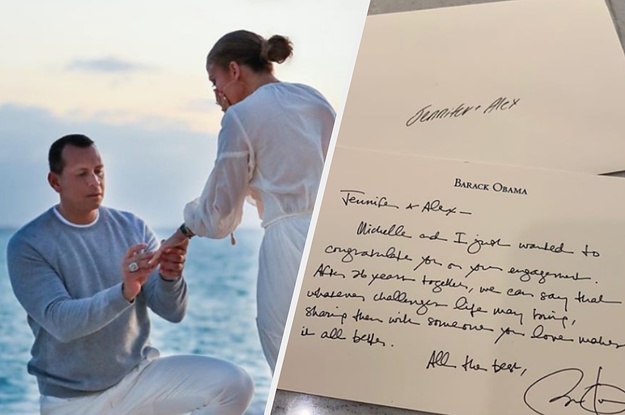 Jennifer + Alex
BARACK OBAMA
Jennifer & Alex—
Michelle and I just wanted to
congratulate you on your engagement.
After 26 years together, we can say that
whatever challenges life may bring,
sharing them with someone you love makes
it all better.
All the best,